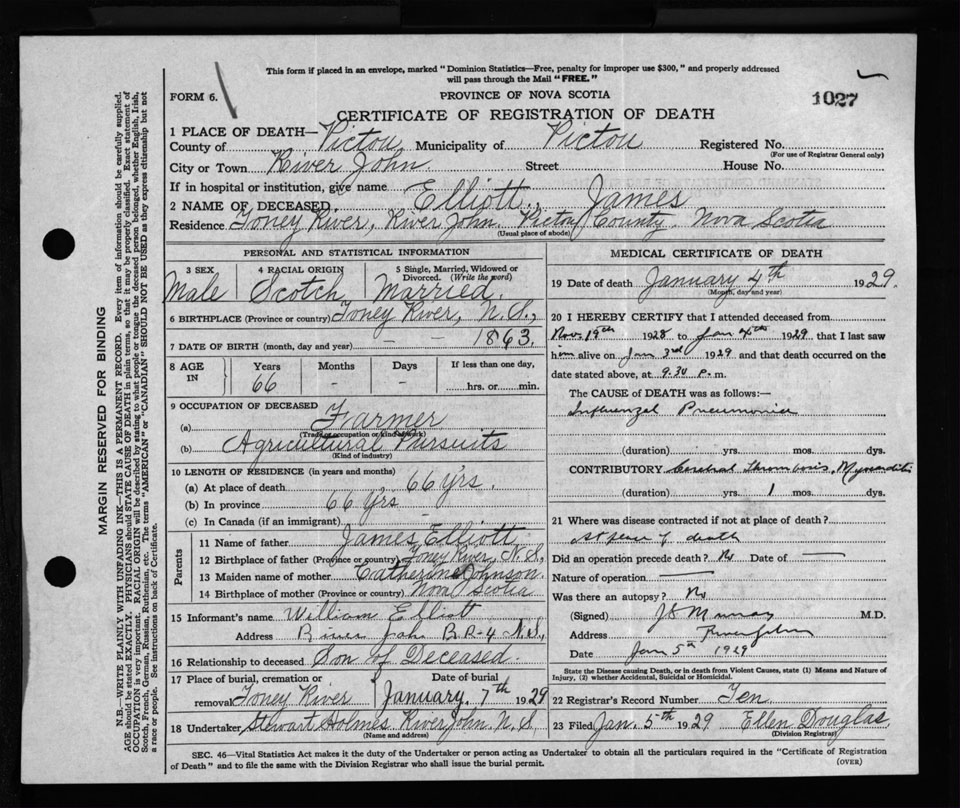 This form if placed in an envelope, marked "Dominion Statistics—Free, penalty for improper use $300," and properly addressed
will pass through the Mail "FREE."
FORM 6.
PROVINCE OF NOVA SCOTIA
1027
CERTIFICATE OF REGISTRATION OF DEATH
1 PLACE OF DEATH—
County of Pictou Municipality of Pictou Registered No.
(For use of Registrar General only)
City or Town River John Street House No.
If in hospital or institution, give name
2 NAME OF DECEASED Elliott, James
Residence Toney River, River John, Pictou County, Nova Scotia
(Usual place of abode)
PERSONAL AND STATISTICAL INFORMATION
3 SEX 4 RACIAL ORIGIN 5 Single, Married, Widowed or Divorced. (Write the word)
Male Scotch Married.
6 BIRTHPLACE (Province or country) Toney River, N. S.,
7 DATE OF BIRTH (month, day and year) – – 1863.
8 AGE IN Years Months Days If less than one day,
66 – – hrs. or min.
9 OCCUPATION OF DECEASED
(a) Farmer
(Trade occupation or kind of work)
(b) Agricultural Pursuits
(Kind of industry)
10 LENGTH OF RESIDENCE (in years and months)
(a) At place of death 66 yrs.
(b) In province 66 yrs
(c) In Canada (if an immigrant)
Parents
11 Name of father James Elliott
12 Birthplace of father (Province or country) Toney River, N. S.
13 Maiden name of mother Catherine Johnson.
14 Birthplace of mother (Province or country) Nova Scotia
15 Informant's name William Elliott
Address River John R.R-4 N.S.,
16 Relationship to deceased Son of Deceased.
17 Place of burial, cremation or removal Toney River Date of burial January, 7th 1929
18 Undertaker Stewart Holmes, River John, N. S.
(Name and address)
MEDICAL CERTIFICATE OF DEATH
19 Date of death January 4th 1929.
(Month, day and year)
20 I HEREBY CERTIFY that I attended deceased from
Nov. 19th 1928 to Jan 4th 1929 that I last saw
him alive on Jan 3rd 1929 and that death occurred on the
date stated above, at 9.30 p.m.
The CAUSE of DEATH was as follows:—
Influenzal Pneumonia
(duration) yrs. mos. dys.
CONTRIBUTORY Cerebral thrombosis, Myocarditis
(duration) yrs. 1 mos. dys.
21 Where was disease contracted if not at place of death?
At place of death
Did an operation precede death? No Date of —
Nature of operation —
Was there an autopsy? No
(Signed) Murray M.D.
Address River John
Date Jan 5th 1929
State the Disease causing Death, or in death from Violent Causes, state (1) Means and Nature of
Injury, (2) whether Accidental, Suicidal or Homicidal.
22 Registrar's Record Number Ten
23 Filed Jan. 5th 1929 Ellen Douglas
(Division Registrar)
SEC. 46—Vital Statistics Act makes it the duty of the Undertaker or person acting as Undertaker to obtain all the particulars required in the "Certificate of Registration
of Death" and to file the same with the Division Registrar who shall issue the burial permit.
(OVER)
MARGIN RESERVED FOR BINDING
N.B.—WRITE PLAINLY WITH UNFADING INK—THIS IS A PERMANENT RECORD. Every item of information should be carefully supplied.
AGE should be stated EXACTLY. PHYSICIANS should STATE CAUSE OF DEATH in plain terms, so that it may be properly classified. Exact statement of
OCCUPATION is very important. RACIAL ORIGIN will be described by stating to what people or tongue the deceased person belonged, whether English, Irish,
Scotch, French, German, Russian, Ruthenian, etc. The terms "AMERICAN" or "CANADIAN" SHOULD NOT BE USED as they express citizenship but not
a race or people. See instructions on back of Certificate.